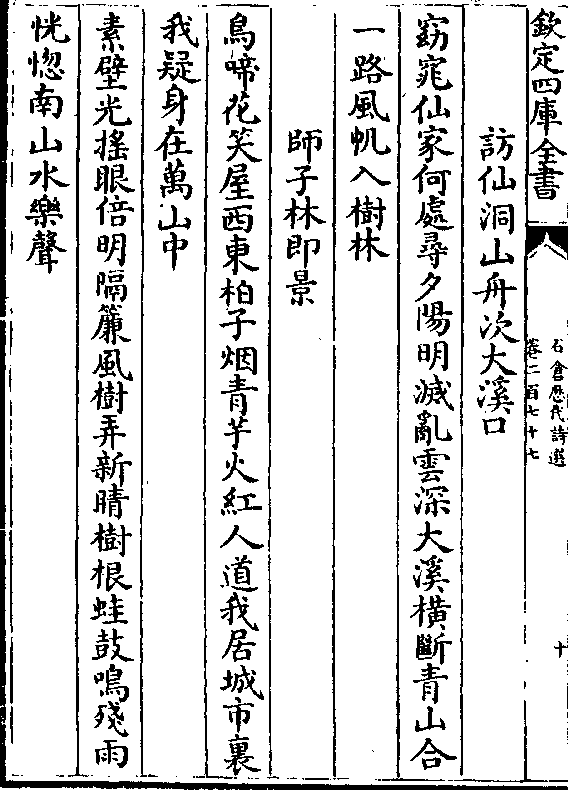 欽定四庫全書
石倉歷代詩選
卷二百七十七
十
訪仙洞山舟次大溪口
窈窕仙家何處尋夕陽明滅亂雲深大溪橫斷青山合
一路風帆入樹林
師子林即景
鳥啼花笑屋西東柏子烟青芋火紅人道我居城市裏
我疑身在萬山中
素壁光搖眼倍明隔簾風樹弄新晴樹根蛙鼓鳴殘雨
恍惚南山水樂聲